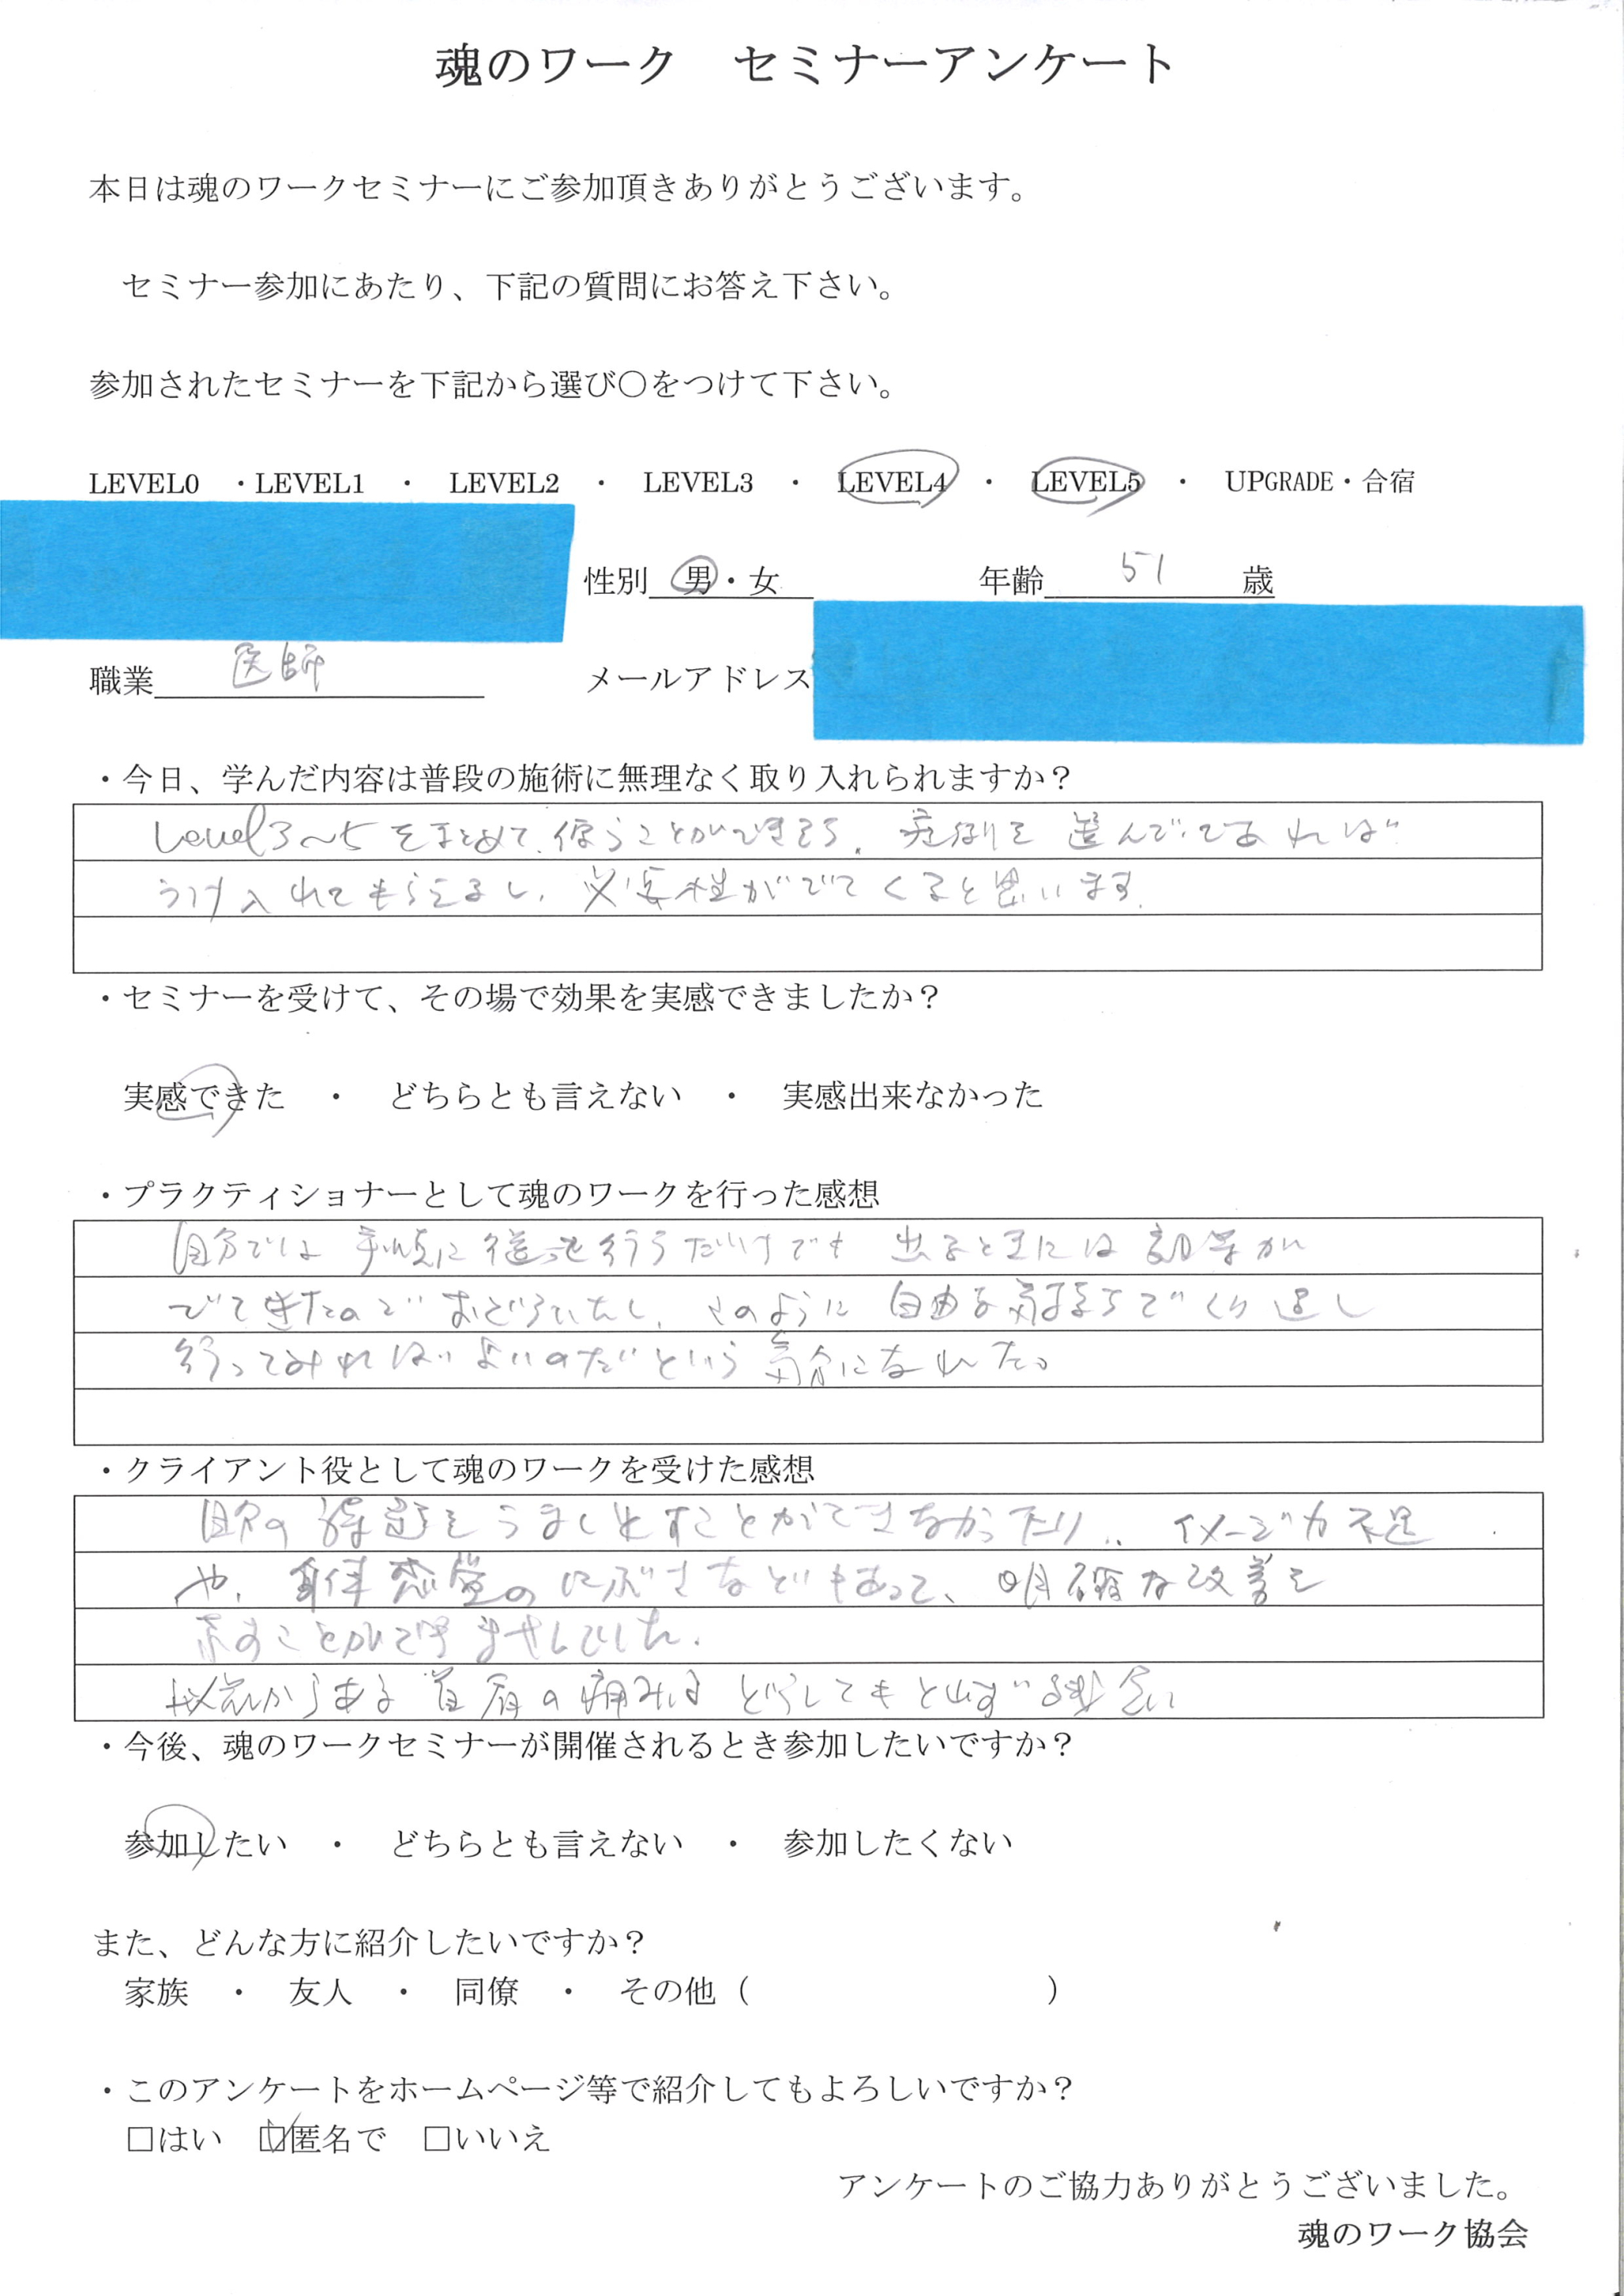 魂のワーク　セミナーアンケート
本日は魂のワークセミナーにご参加頂きありがとうございます。
セミナー参加にあたり、下記の質問にお答え下さい。
参加されたセミナーを下記から選び〇をつけて下さい。
LEVEL0　・LEVEL1　・　LEVEL2　・　LEVEL3　・　LEVEL4　・　LEVEL5　・　UPGRADE・合宿
性別　男・女　年齢　51　歳
職業　医師　メールアドレス
・今日、学んだ内容は普段の施術に無理なく取り入れられますか？
Level3～5をまとめて、使うことができそう。症例を選んでであれば
うけ入れてもらえるし、必要性がでてくると思います。
・セミナーを受けて、その場で効果を実感できましたか？
実感できた　・　どちらとも言えない　・　実感出来なかった
・プラクティショナーとして魂のワークを行った感想
自分では手順に従って行うだけでも出るときには効果が
でてきたのでおどろいたし、このように自由な気持ちでくり返し
行ってみればよいのだという気分になれた。
・クライアント役として魂のワークを受けた感想
自分の課題をうまく出すことができなかったり、イメージ力不足
や、身体感覚のにぶさなどもあって、明確な改善を
示すことができませんでした。
からある首肩の痛みはどうしてもとれず残念
・今後、魂のワークセミナーが開催されるとき参加したいですか？
参加したい　・　どちらとも言えない　・　参加したくない
また、どんな方に紹介したいですか？
家族　・　友人　・　同僚　・　その他（　　　　　　　　　）
・このアンケートをホームページ等で紹介してもよろしいですか？
□はい　☑匿名で　□いいえ
アンケートのご協力ありがとうございました。
魂のワーク協会